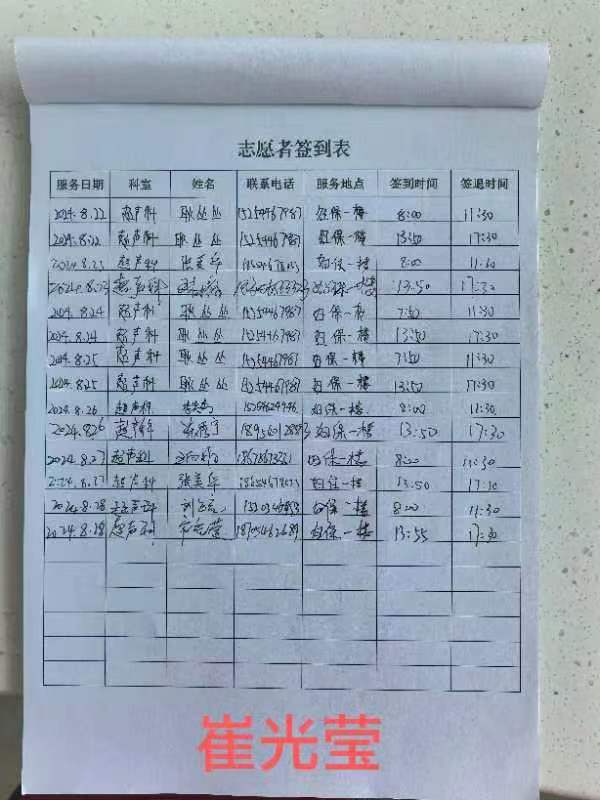 志愿者签到表
服务日期 科室 姓名 联系电话 服务地点 签到时间 签退时间
2024.8.22 超声科 耿丛丛 15254467987 妇保一楼 8:00 11:30
2024.8.22 超声科 耿丛丛 15254467987 妇保一楼 13:50 17:30
2024.8.23 超声科 张美华 妇保一楼 8:00 11:30
2024.8.23 超声科 妇保一楼 13:50 17:30
2024.8.24 超声科 耿丛丛 15254467987 妇保一楼 7:50 11:30
2024.8.24 超声科 耿丛丛 15254467987 妇保一楼 13:50 17:30
2024.8.25 超声科 耿丛丛 15254467987 妇保一楼 7:50 11:30
2024.8.25 超声科 耿丛丛 15254467987 妇保一楼 13:50 17:30
2024.8.26 超声科 妇保一楼 8:00 11:30
2024.8.26 超声科 妇保一楼 13:50 17:30
2024.8.27 超声科 妇保一楼 8:00 11:30
2024.8.27 超声科 张美华 妇保一楼 13:50
2024.8.28 超声科 妇保一楼 8:00 11:30
2024.8.28 超声科 崔光莹 妇保一楼 13:55 17:30
崔光莹